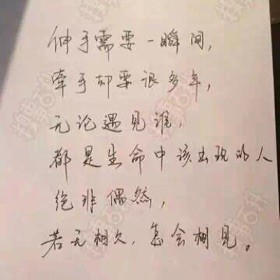 伸手需要一瞬间,
牵手却要很多年,
无论遇见谁,
都是生命中该出现的人
绝非偶然,
若无相欠,怎会相见。